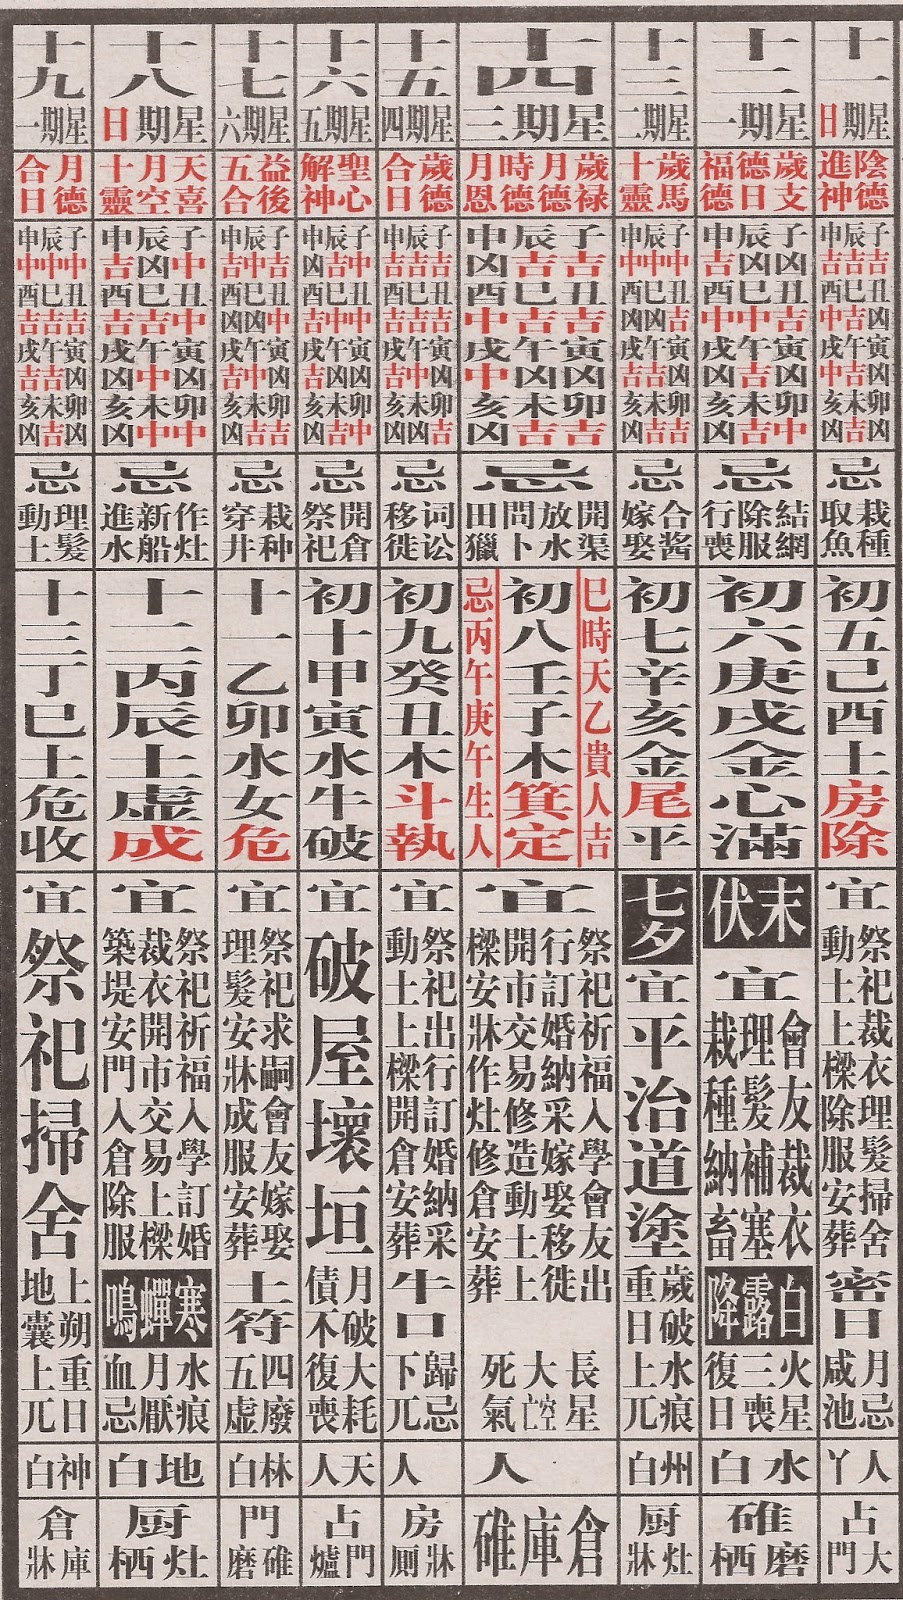 十一
星期日
陰德
進神
子吉丑凶寅凶卯凶
辰吉巳吉午吉未吉
申吉酉中戌中亥凶
忌
栽種
取魚
初五己酉土房除
宜
祭祀裁衣理髮掃舍
動土上樑除服安葬
密日
月忌
咸池
人
丫
占
大
門
十二
星期一
歲支
德日
福德
子凶丑吉寅凶卯中
辰凶巳中午吉未凶
申吉酉中戌凶亥凶
忌
結網
除服
行喪
初六庚戌金心滿
末伏
宜
會友裁衣
理髮補塞
栽種納畜
白露降
火星
三喪
復日
水白
碓
磨栖
十三
星期二
歲馬
十靈
子中丑吉寅凶卯吉
辰中巳凶午吉未吉
申中酉凶戌吉亥凶
忌
合酱
嫁娶
初七辛亥金尾平
七夕
宜
平治道塗
歲破水痕
重日上兀
州白
厨
灶牀
十四
星期三
歲禄
月德
時德
月恩
子吉丑吉寅凶卯吉
辰吉巳吉午凶未吉
申凶酉中戌中亥凶
忌
開渠
放水
問卜
田獵
巳時天乙貴人吉
初八壬子木箕定
忌丙午庚午生人
宜
祭祀祈福入學會友出
行訂婚納采嫁娶移徙
開市交易修造動土上
樑安牀作灶修倉安葬
長星
大空亡
死氣
人
倉庫碓
十五
星期四
歲德
合日
子吉丑吉寅凶卯吉
辰吉巳吉午中未凶
申吉酉吉戌吉亥凶
忌
词讼
移徙
初九癸丑木斗執
宜
祭祀出行訂婚納采
動土上樑開倉安葬
牛口
歸忌
下兀
人
房
牀厕
十六
星期五
聖心
解神
子中丑中寅凶卯中
辰吉巳中午凶未吉
申凶酉吉戌吉亥凶
忌
開倉
祭祀
初十甲寅水牛破
宜
破屋壞垣
月破大耗
債不復喪
天人
占
門爐
十七
星期六
益後
五合
子吉丑中寅凶卯吉
辰中巳凶午中未吉
申吉酉凶戌吉亥凶
忌
栽种
穿井
十一乙卯水女危
宜
祭祀求嗣會友嫁娶
理髮安牀成服安葬
土符
四廢
五虛
林白
門
碓磨
十八
星期日
天喜
月空
十靈
子中丑中寅凶卯中
辰凶巳吉午中未中
申吉酉吉戌凶亥凶
忌
作灶
新船
進水
十二丙辰土虛成
宜
祭祀祈福入學訂婚
裁衣開市交易上樑
築堤安門入倉除服
寒蟬鳴
水痕
月厭
血忌
地白
厨
灶栖
十九
星期一
月德
合日
子中丑吉寅凶卯凶
辰中巳吉午吉未吉
申中酉吉戌吉亥凶
忌
理髮
動土
十三丁巳土危收
宜
祭祀掃舍
上朔重日
地囊上兀
神白
倉
庫牀